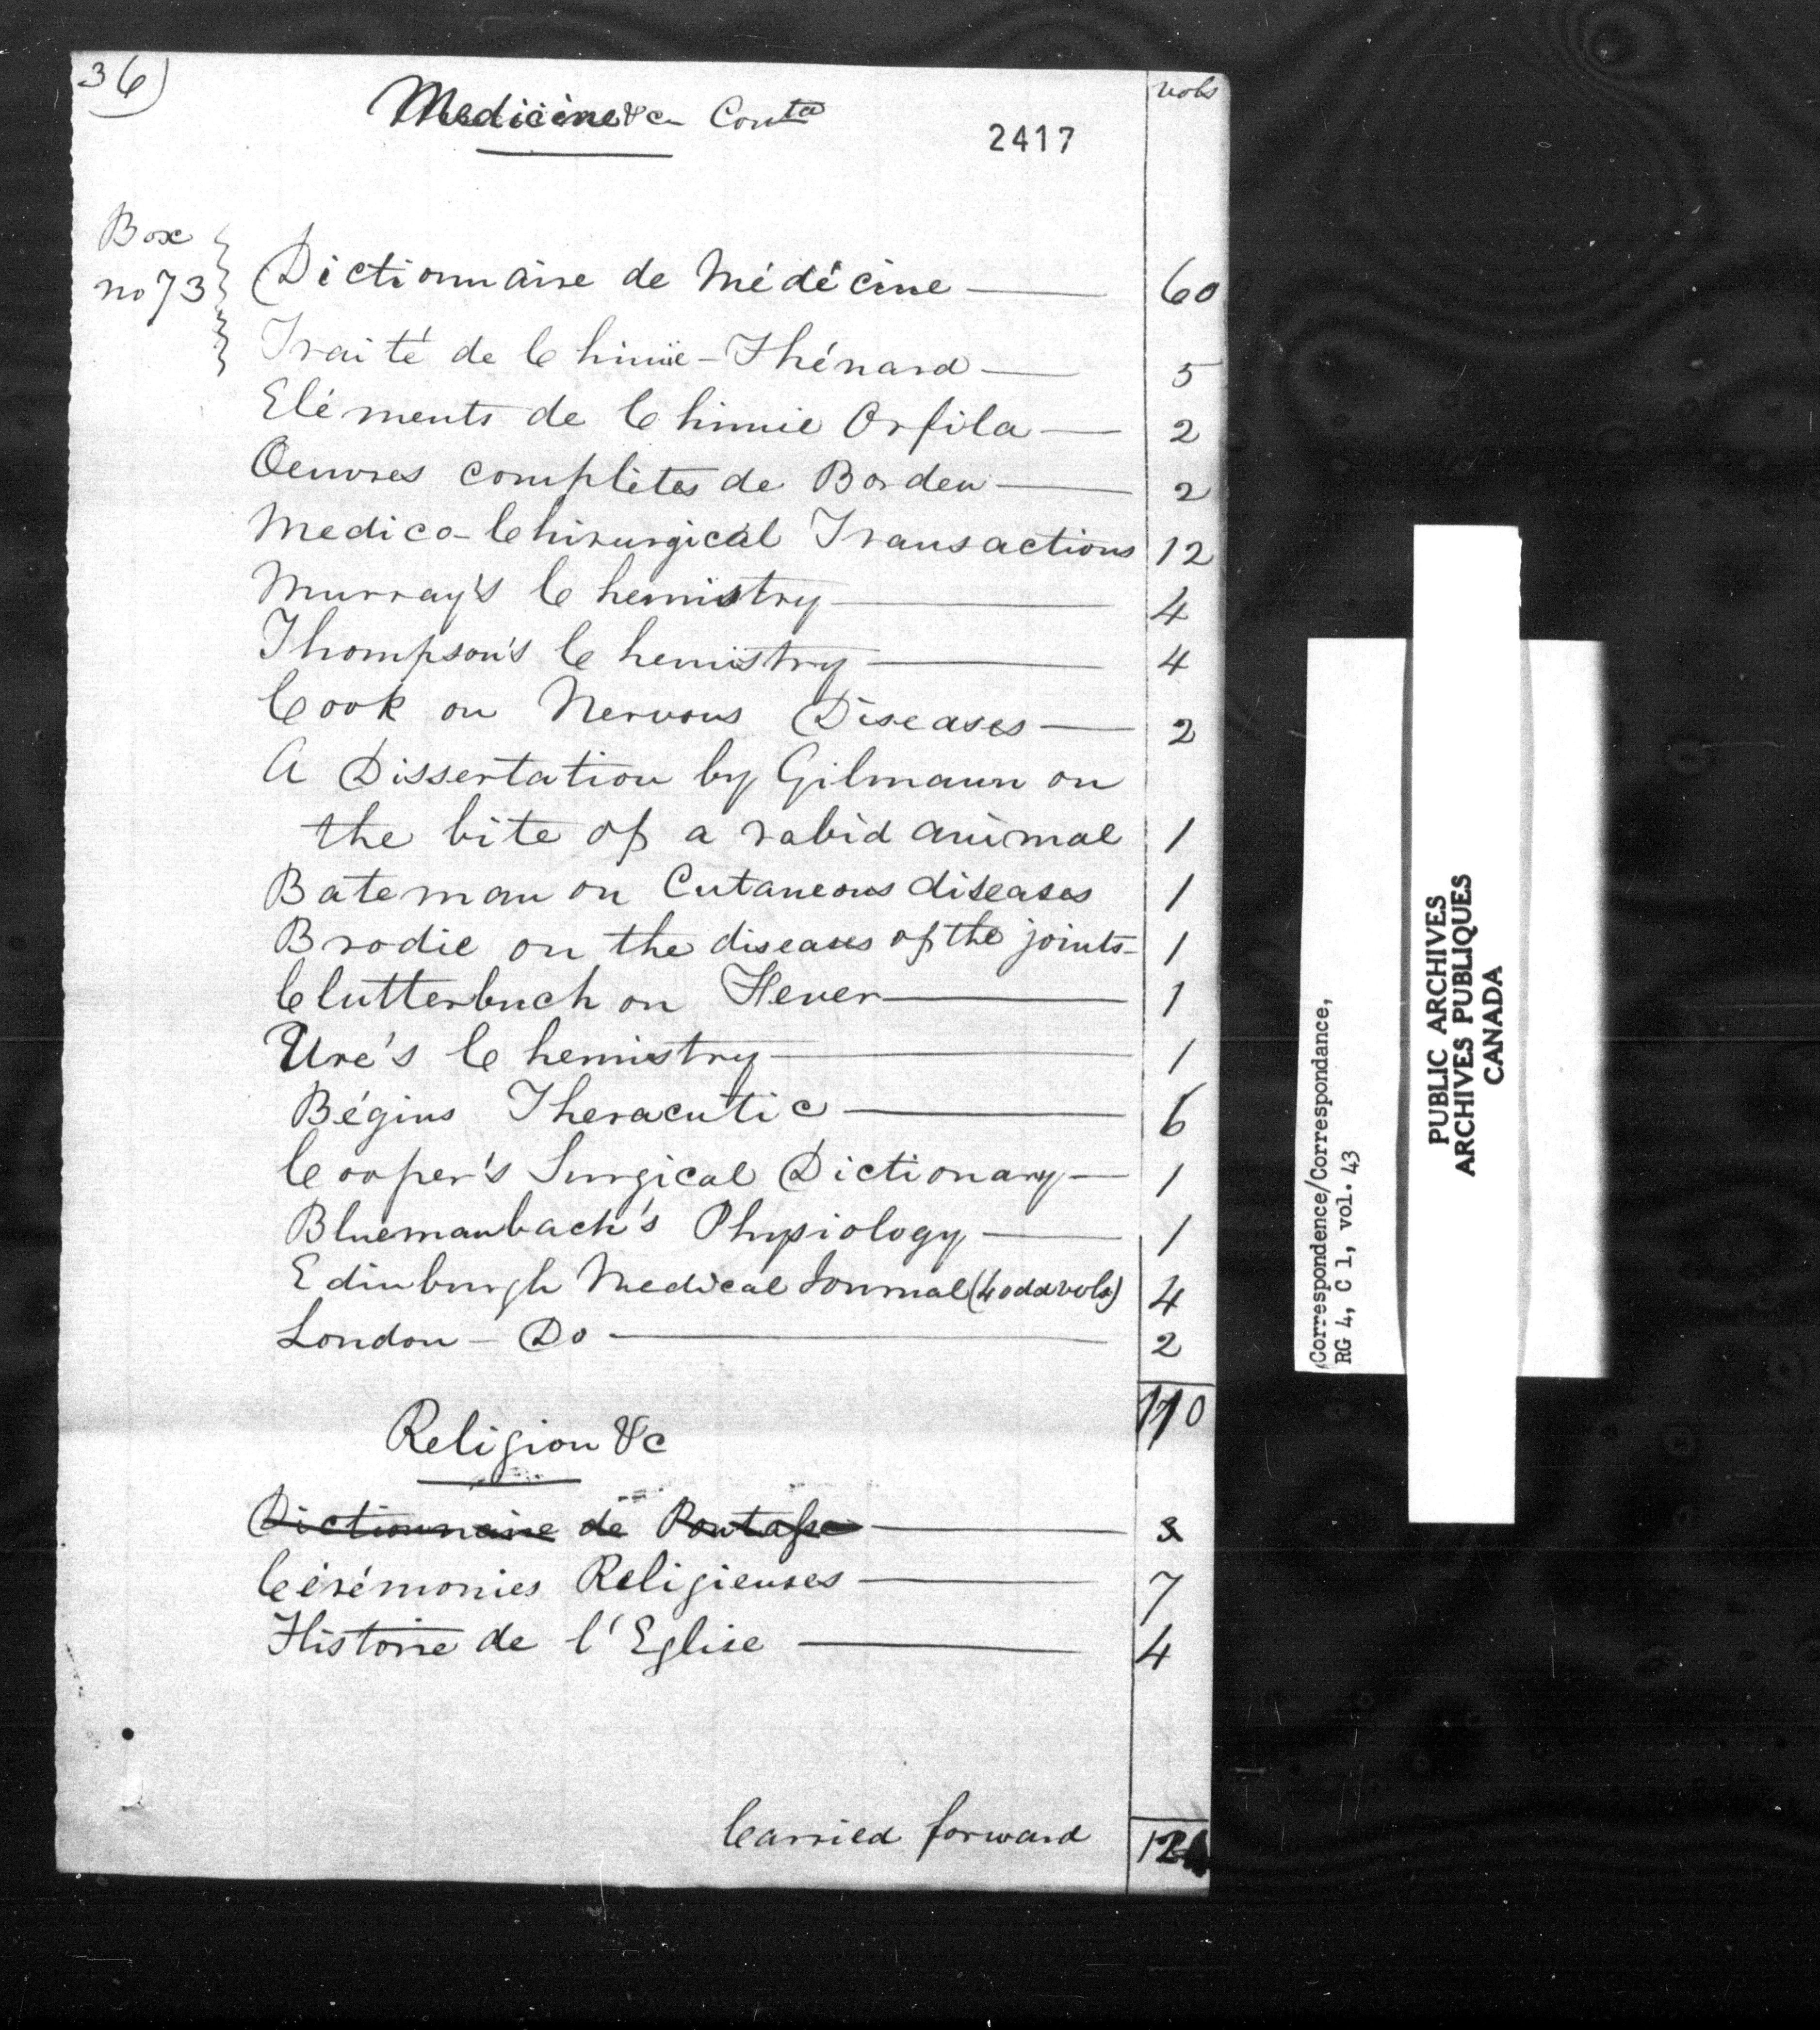 36)
vols
Medicine &c - Contd
2417
Box
no 73
Dictionnaire de Médécine — 60
Traité de Chimie - Thénard — 5
Eléments de Chimie Orfila — 2
Oeuvres complètes de Bordeu — 2
Medico-Chirurgical Transactions 12
Murray's Chemistry — 4
Thompson's Chemistry — 4
Cook on Nervous Diseases — 2
A Dissertation by Gilmann on
the bite of a rabid animal 1
Bateman on Cutaneous diseases 1
Brodie on the diseases of the joints - 1
Clutterbuch on Fever — 1
Ure's Chemistry — 1
Bégins Theraeutic — 6
Cooper's Surgical Dictionary — 1
Bluemanbach's Physiology — 1
Edinburgh Medical Journal (4 odd vols) 4
London - Do — 2
110
Religion &c
Dictionnaire de
Cérémonies Religieuses — 7
Histoire de l'Eglise — 4
Carried forward
PUBLIC ARCHIVES
ARCHIVES PUBLIQUES
CANADA
Correspondence/Correspondance,
RG 4, C 1, vol. 43